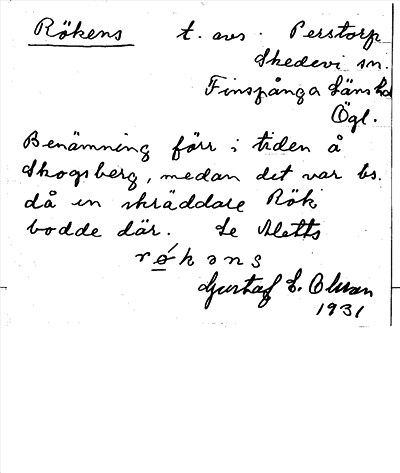 Rökens t. avs. Perstorp
Skedevi sn.
Finspånga Länshd
Ögl.
Benämning förr i tiden å
Skogsberg, medan det var bs.
då en skräddare Rök
bodde där. Se
røkəns
Gustaf E. Olsson
1931